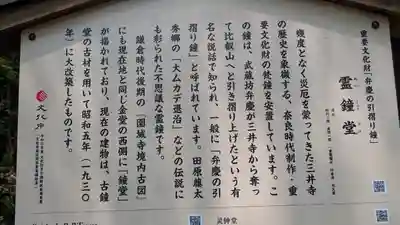 重要文化財「弁慶の引摺り鐘」
霊鐘堂
幾度となく災厄を蒙ってきた三井寺
の歴史を象徴する、奈良時代制作・重
要文化財の梵鐘を安置しています。こ
の鐘は、武蔵坊弁慶が三井寺から奪っ
て比叡山へと引き摺り上げたという有
名な説話で知られ、一般に「弁慶の引
摺り鐘」と呼ばれています。田原藤太
秀郷の「大ムカデ退治」などの伝説に
も彩られた不思議な霊鐘です。
鎌倉時代後期の「園城寺境内古図」
にも現在地と同じ金堂の西側に「鐘堂」
が描かれており、現在の建物は、古鐘
堂の古材を用いて昭和五年(一九三〇
年)に大改築したものです。
文化庁
灵钟堂